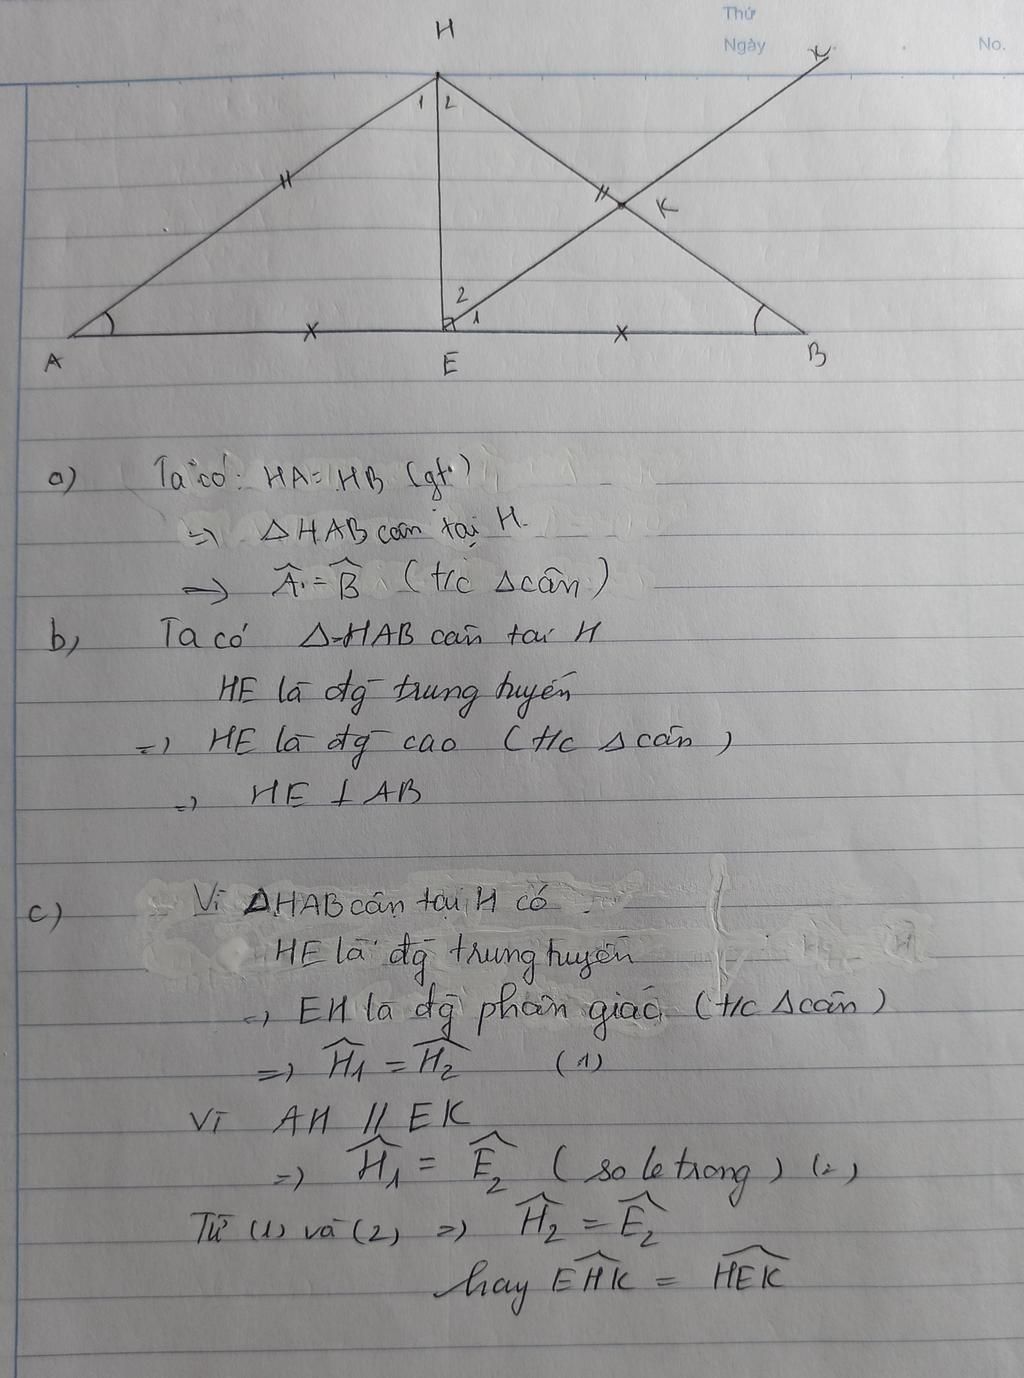 Thứ
Ngày
No.
H
x
1 2
K
2
1
A
E
B
a) Ta có: HA = HB (gt)
=> ΔHAB cân tại H.
=> Â = B̂ (t/c Δ cân)
b) Ta có ΔHAB cân tại H
HE là đg trung tuyến
=> HE là đg cao (t/c Δ cân)
=> HE ⊥ AB
c) Vì ΔHAB cân tại H có
HE là đg trung tuyến
=> EH là đg phân giác (t/c Δ cân)
=> Ĥ1 = Ĥ2 (1)
Vì AH // EK
=> Ĥ1 = Ê2 (so le trong) (2)
Từ (1) và (2) => Ĥ2 = Ê2
hay EĤK = HÊK